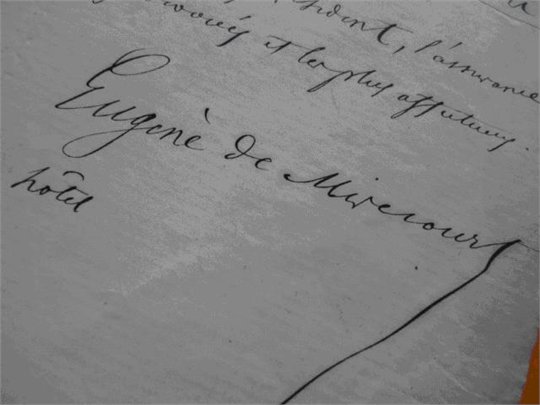 l'assurance
et les plus affectueux.
Eugène de Mirecourt
hôtel